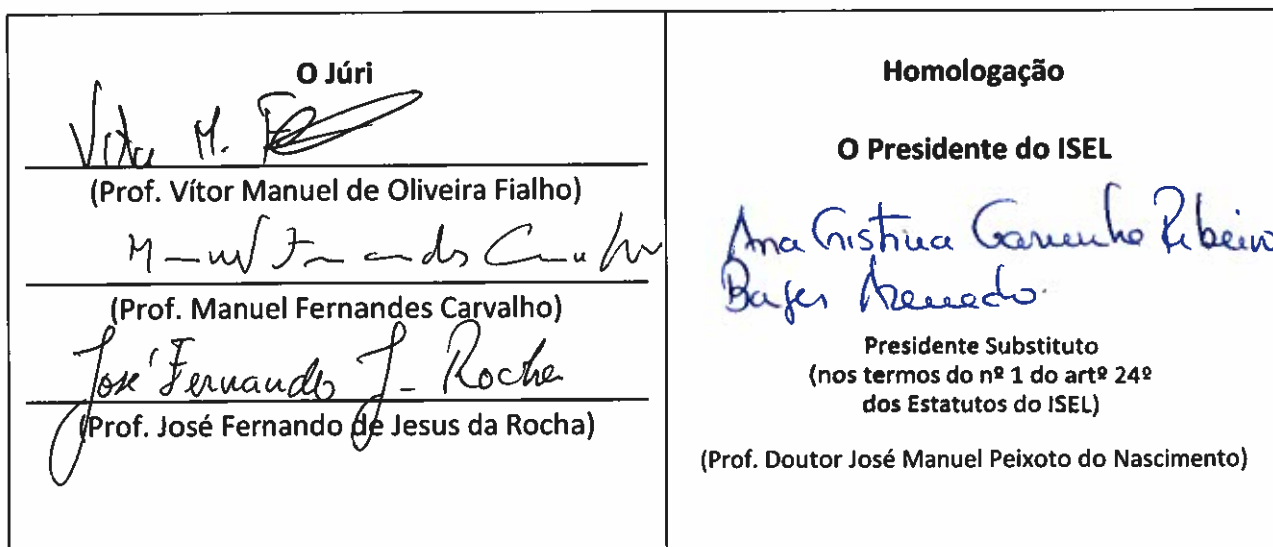 O Júri
Vítor M. F
(Prof. Vítor Manuel de Oliveira Fialho)
Manuel Fernandes Carvalho
(Prof. Manuel Fernandes Carvalho)
José Fernando J. Rocha
(Prof. José Fernando de Jesus da Rocha)
Homologação
O Presidente do ISEL
Ana Cristina Ribeiro
Azevedo
Presidente Substituto
(nos termos do nº 1 do artº 24º
dos Estatutos do ISEL)
(Prof. Doutor José Manuel Peixoto do Nascimento)